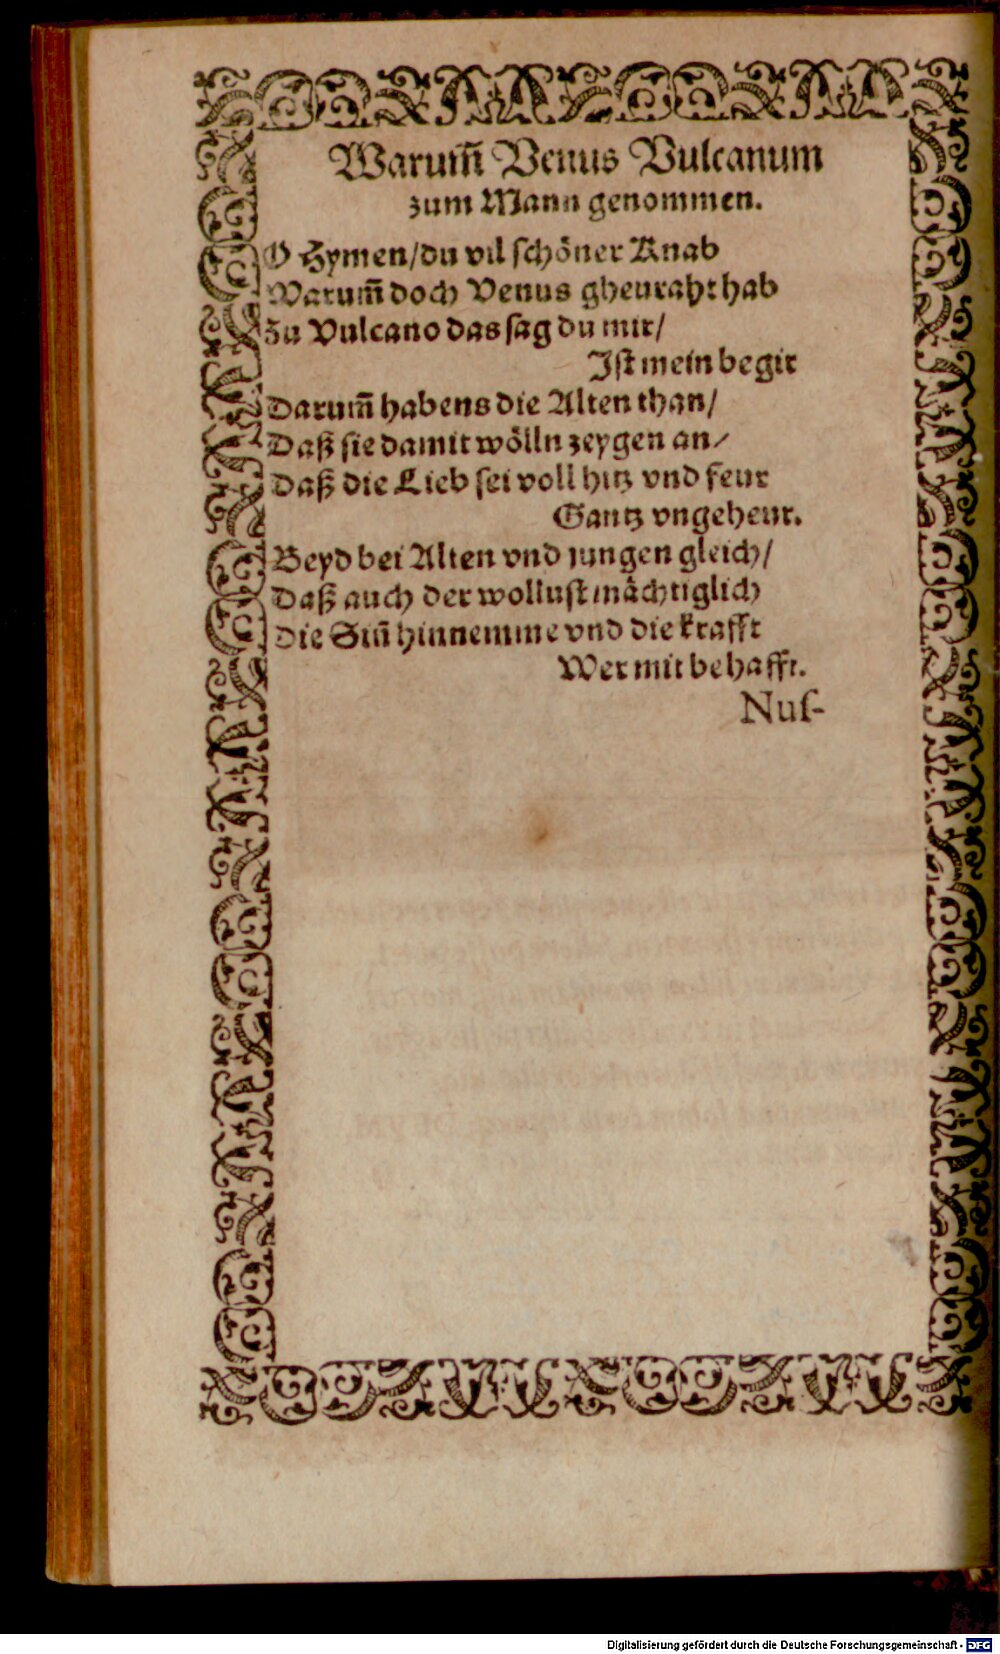 Warum̃ Venus Vulcanum
zum Mann genommen.
O Hymen/du vil schöner Knab
Warum̃ doch Venus gheuraht hab
Zu Vulcano das sag du mir/
Ist mein begir
Darum̃ habens die Alten than/
Daß sie damit wölln zeygen an/
Daß die Lieb sei voll hitz vnd feur
Gantz vngeheur.
Beyd bei Alten vnd jungen gleich/
Daß auch der wollust mächtiglich
Die Siñ hinnemme vnd die krafft
Wer mit behafft.
Nuſ-
Digitalisierung gefördert durch die Deutsche Forschungsgemeinschaft - DFG